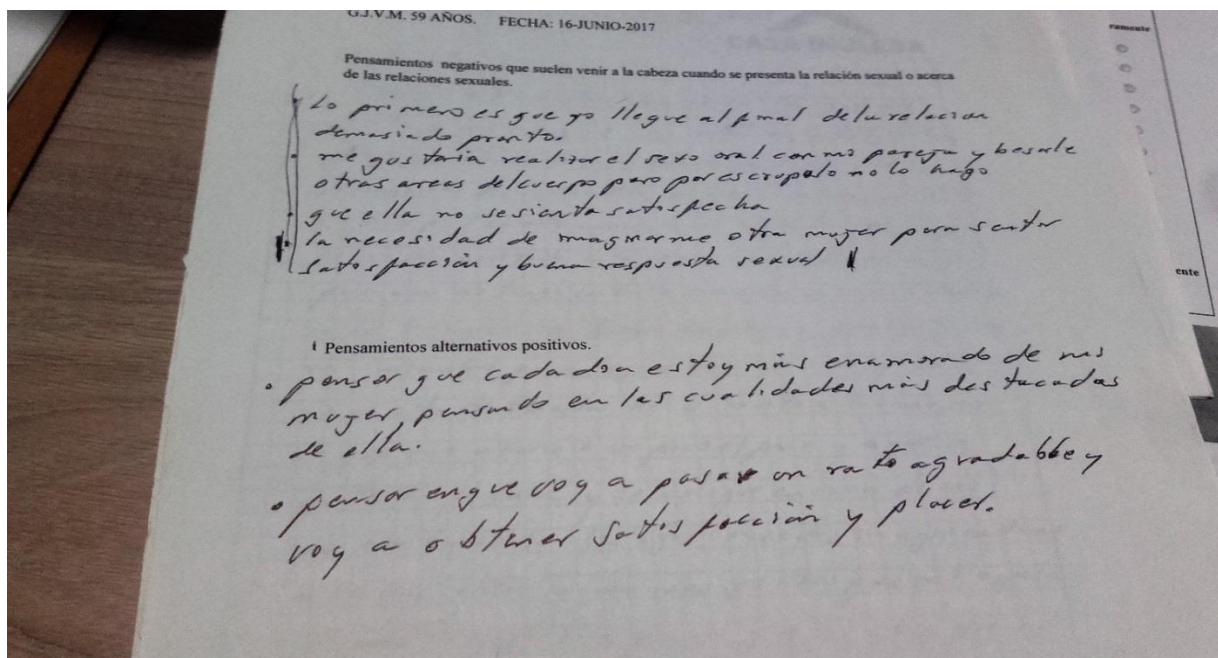 G.J.V.M. 59 AÑOS. FECHA: 16-JUNIO-2017
Pensamientos negativos que suelen venir a la cabeza cuando se presenta la relación sexual o acerca
de las relaciones sexuales.
Lo primero es que yo llegue al final de la relacion
demasiado pronto.
me gustaria realizar el sexo oral con mi pareja y besarle
otras areas del cuerpo pero por escrupalo no lo hago
que ella no se sienta satisfecha
la necesidad de imaginarme otra mujer para sentir
satisfacción y buena respuesta sexual
Pensamientos alternativos positivos.
• pensar que cada dia estoy más enamorado de mi
mujer, pensando en las cualidades más destacadas
de ella.
• pensar en que voy a pasar un rato agradable y
voy a obtener satisfacción y placer.
ramente
ente